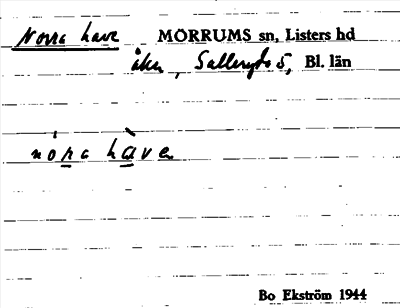 Norra have MÖRRUMS sn, Listers hd
åker, Salleryd 5, Bl. län
nóra hàven
Bo Ekström 1944